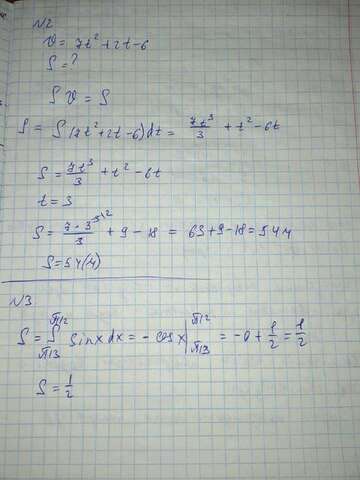 №2
υ = 7t² + 2t - 6
S = ?
∫ υ = S
S = ∫ (7t² + 2t - 6) dt = 7t³/3 + t² - 6t
S = 7t³/3 + t² - 6t
t = 3
S = 7·3³/3 + 9 - 18 = 63 + 9 - 18 = 54 м
S = 54 (м)
№3
S = ∫ π/3 π/2 sin x dx = - cos x | π/3 π/2 = -0 + 1/2 = 1/2
S = 1/2